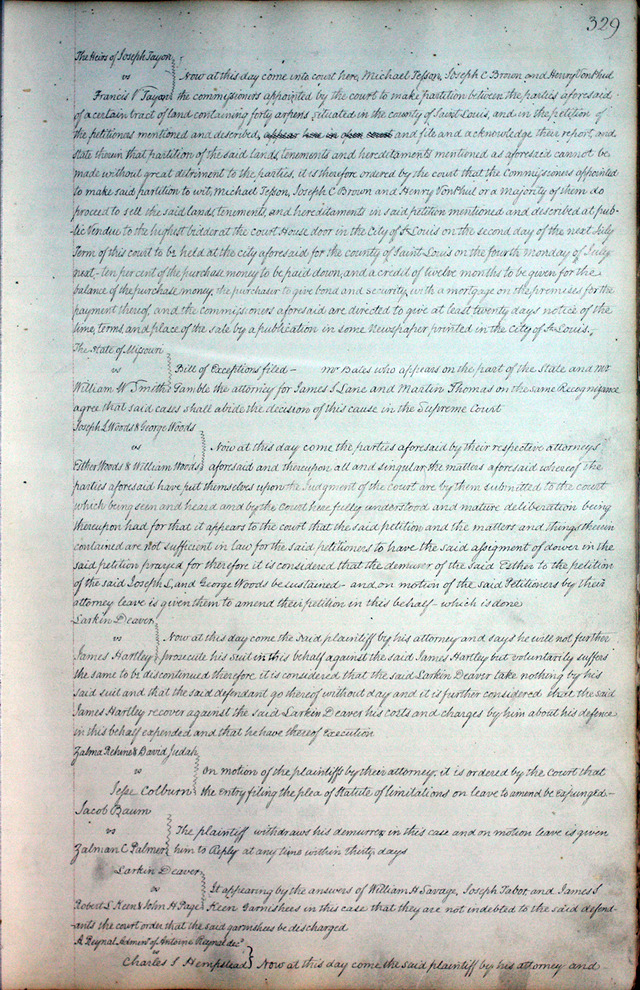 329
The Heirs of Joseph Tayon
vs } Now at this day come into court here, Michael Tesson, Joseph C Brown and Henry VonPhul
Francis V Tayon the commissioners appointed by the court to make partition between the parties aforesaid
of a certain tract of land containing forty arpens situated in the county of Saint Louis, and in the petition of
the petitioners mentioned and described, appear here in open court and file and acknowledge their report, and
state therein that partition of the said lands, tenements and hereditaments mentioned as aforesaid cannot be
made without great detriment to the parties, it is therefore ordered by the court that the Commissioners appointed
to make said partition to wit, Michael Tesson, Joseph C Brown and Henry VonPhul or a Majority of them do
proceed to sell the said lands, tenements, and hereditaments in said petition mentioned and described at pub-
lic Vendue to the highest bidder at the court House door in the City of St Louis on the second day of the next July
Term of this court to be held at the city aforesaid for the county of Saint Louis on the fourth Monday of July
next - ten per cent of the purchase money to be paid down, and a credit of twelve months to be given for the
balance of the purchase money, the purchaser to give bond and security, with a mortgage on the premises for the
payment thereof, and the commissioners aforesaid are directed to give at least twenty days notice of the
time, terms, and place of the sale by a publication in some Newspaper printed in the city of St Louis.,
The State of Missouri
vs } Bill of Exceptions filed - Mr Bates who appears on the part of the State and Mr
William W Smith Gamble the attorney for James S Lane and Martin Thomas on the same Recognizance
agree that said cases shall abide the decision of this cause in the Supreme Court
Joseph L Woods & George Woods
vs } Now at this day come the parties aforesaid by their respective attorneys
Esther Woods & William Woods aforesaid and thereupon all and singular the matters aforesaid whereof the
parties aforesaid have put themselves upon the Judgment of the Court are by them submitted to the court
which being seen and heard and by the Court here fully understood and mature deliberation being
thereupon had for that it appears to the court that the said petition and the matters and things therein
contained are not sufficient in law for the said petitioners to have the said assigment of dower in the
said petition prayed for therefore it is considered that the demurer of the said Esther to the petition
of the said Joseph L, and George Woods be sustained - and on motion of the said Petitioners by their
attorney leave is given them to amend their petition in this behalf - which is done
Larkin Deaver
vs } Now at this day come the said plaintiff by his attorney and says he will not further
James Hartley prosecute his suit in this behalf against the said James Hartley but voluntarily suffers
the same to be discontinued therefore it is considered that the said Larkin Deaver take nothing by his
said suit and that the said defendant go thereof without day and it is further considered that the said
James Hartley recover against the said Larkin Deaver his costs and charges by him about his defence
in this behalf expended and that he have thereof Execution
Zalma Rehine & David Judah
vs } on motion of the plaintiffs by their attorney, it is ordered by the Court that
Jesse Colburn the Entry filing the plea of Statute of limitations on leave to amend be Expunged -
Jacob Baum
vs } The plaintiff withdraws his demurrer in this case and on motion leave is given
Zalman C Palmer him to Reply at any time within thirty days
Larkin Deaver
vs } It appearing by the answers of William H Savage, Joseph Tabot and James S
Robert L Keen & John H Page Keen Garnishees in this case that they are not indebted to the said defend-
ants the court order that the said garnishees be discharged
A Reynal Admr of Antoine Reynal decd
vs
Charles S Hempstead } Now at this day come the said plaintiff by his attorney and